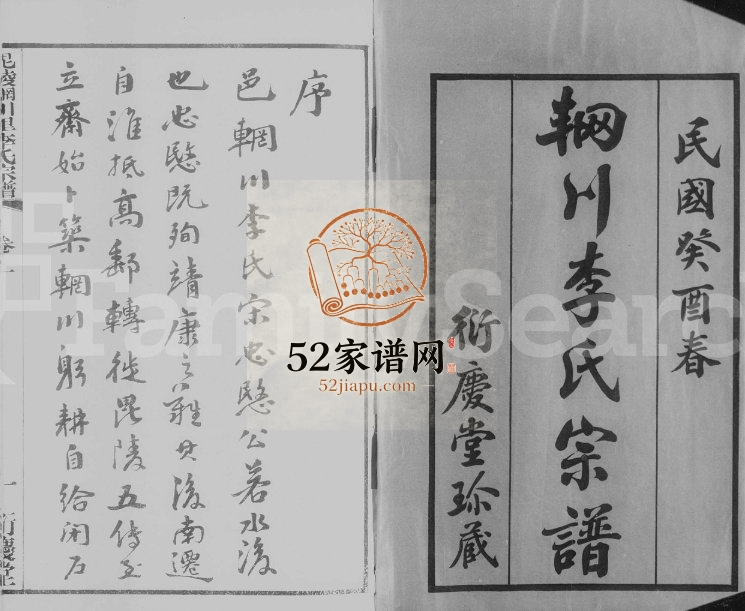 民國癸酉春
輞川李氏宗譜
衍慶堂珍藏
序
邑輞川李氏宋忠愍公若水後
也忠愍既殉靖康之難其後南遷
自淮抵高郵轉徙毘陵五傳至
立齋始卜築輞川躬耕自給閉戶
毘陵輞川里李氏宗譜 卷一
一 衍慶堂
52家谱网
52jiapu.com
FamilySearch